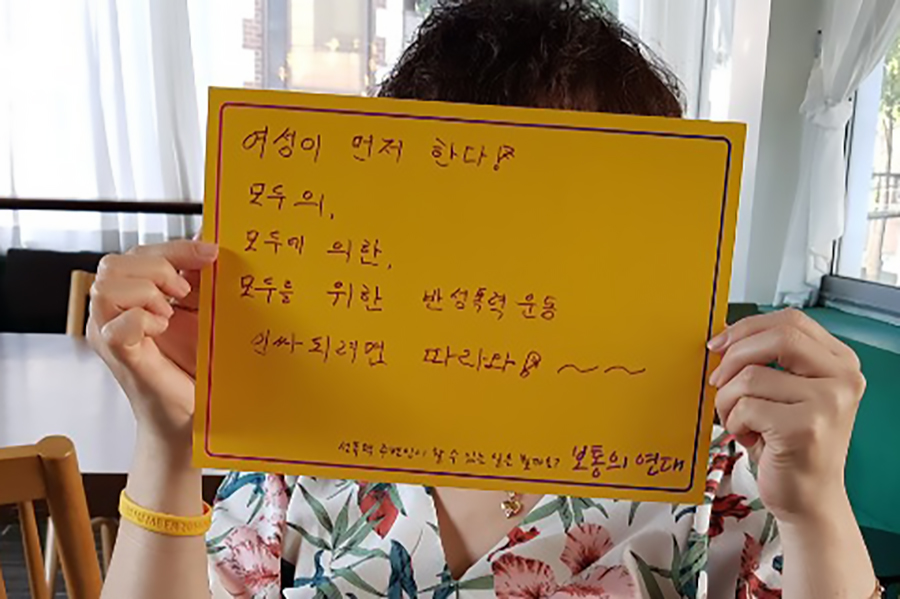 여성이 먼저 한다!
모두의,
모두에 의한,
모두을 위한 반성폭력 운동
인싸 되려면 따라와! ~~
성폭력 주변인이 할 수 있는 일은 뭘까요? 보통의 연대